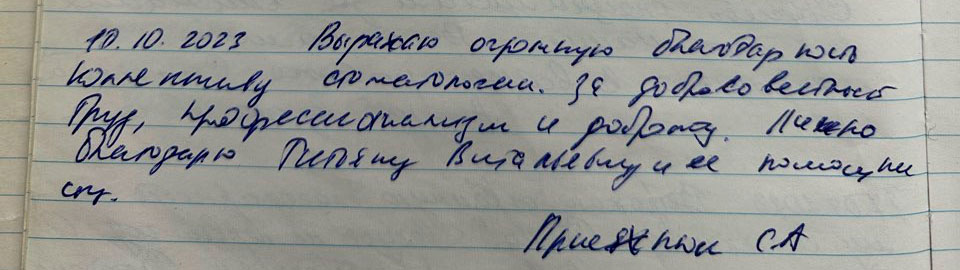 10.10.2023 Выражаю огромную благодарность
коллективу стоматологии. За добросовестный
труд, профессионализм и доброту. Лично
благодарю Татьяну Витальевну и ее помощни
СА